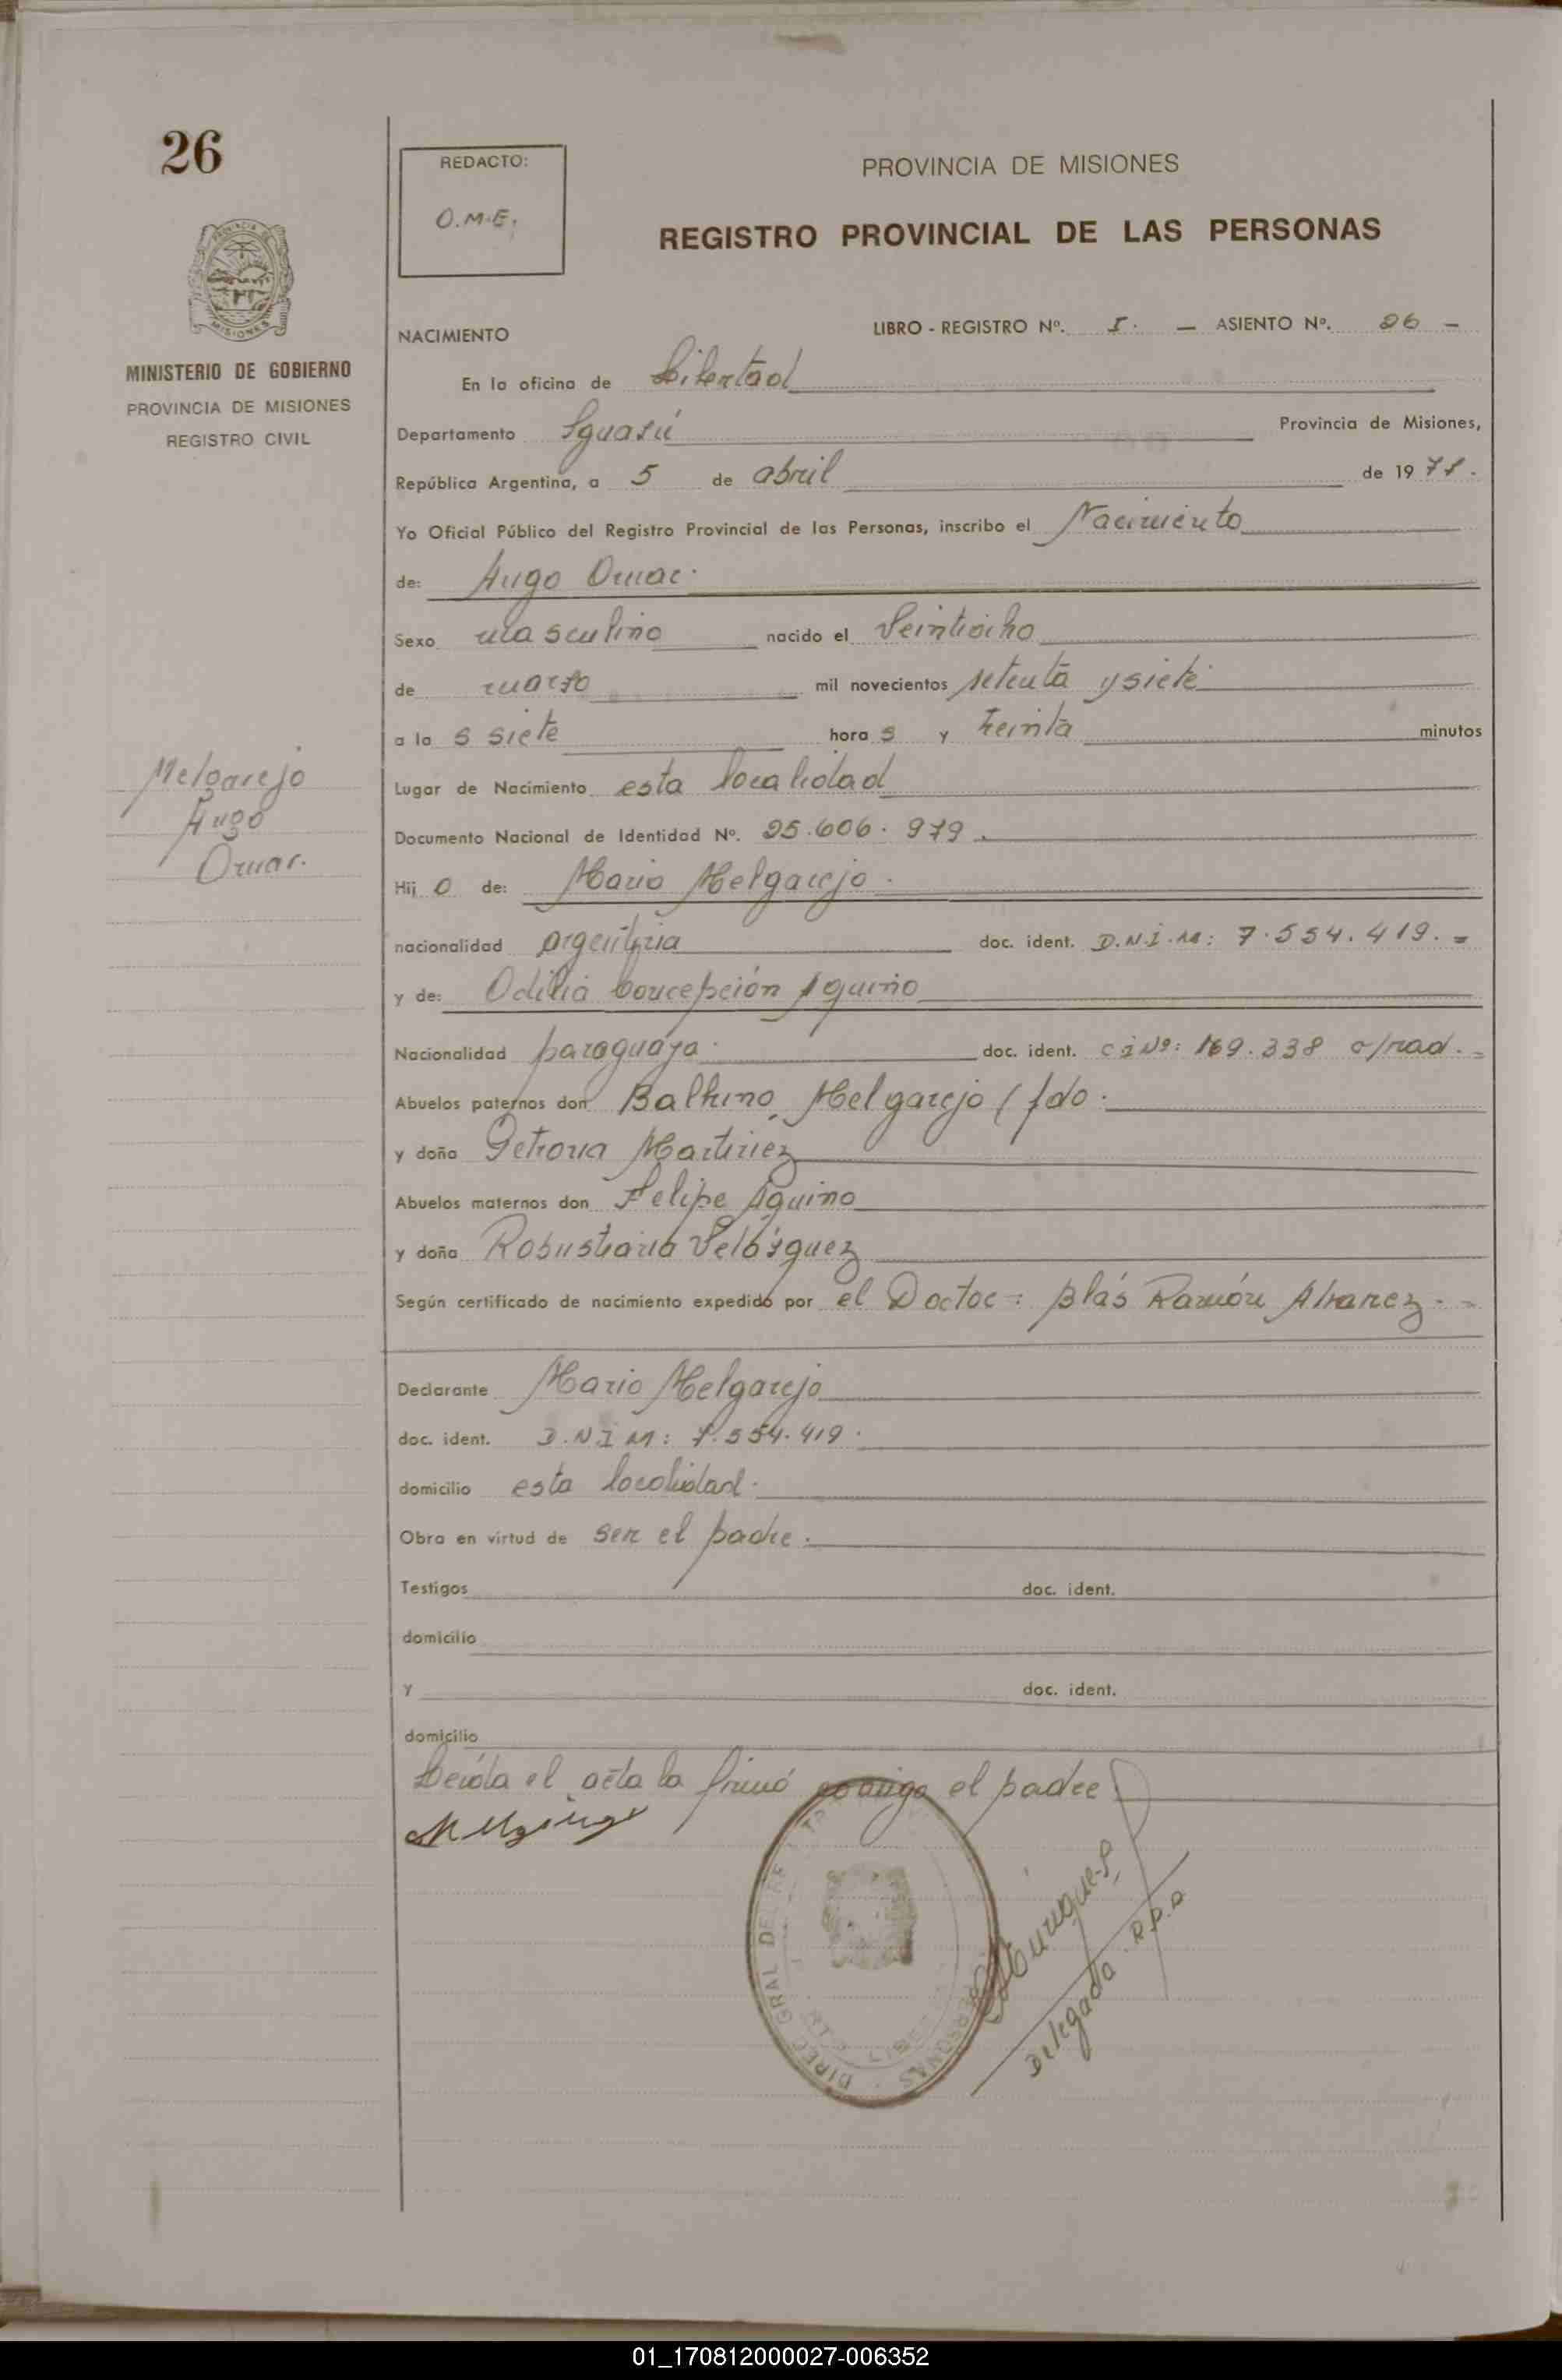 26
REDACTO:
O.M.E.
PROVINCIA DE MISIONES
REGISTRO PROVINCIAL DE LAS PERSONAS
MISIONES
MINISTERIO DE GOBIERNO
PROVINCIA DE MISIONES
REGISTRO CIVIL
NACIMIENTO
LIBRO - REGISTRO Nº. I. — ASIENTO Nº. 26 -
En la oficina de Libertad
Departamento Iguazú Provincia de Misiones,
República Argentina, a 5 de abril de 1977.
Yo Oficial Público del Registro Provincial de las Personas, inscribo el Nacimiento
de: Hugo Omar.
Sexo masculino nacido el Veintiocho
de marzo mil novecientos setenta y siete
a la s siete hora s y treinta minutos
Melgarejo
Hugo
Omar.
Lugar de Nacimiento esta localidad
Documento Nacional de Identidad Nº. 25.606.979.
Hij o de: Mario Melgarejo.
nacionalidad argentina doc. ident. D.N.I.M: 7.554.419.=
y de: Odilia Concepción Aquino
Nacionalidad paraguaya. doc. ident. C I Nº: 169.338 c/rad.=
Abuelos paternos don Balbino Melgarejo (fdo.
y doña Petrona Martinez
Abuelos maternos don Felipe Aquino
y doña Robustiana Velásquez
Según certificado de nacimiento expedido por el Doctor: Blás Ramón Alvarez.=
Declarante Mario Melgarejo
doc. ident. D.N.I M: 7.554.419.
domicilio esta localidad.
Obra en virtud de ser el padre.
Testigos doc. ident.
domicilio
y doc. ident.
domicilio
Leída el acta la firmó conmigo el padre
DIREC. GRAL DE PERSONAS
Delegada R.P.P.
01_170812000027-006352